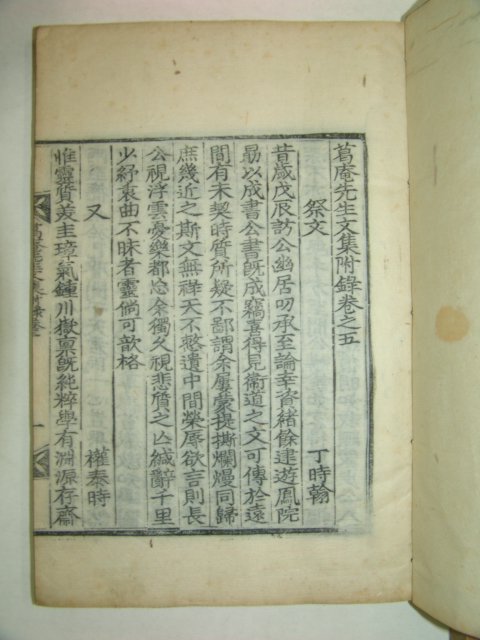 葛庵先生文集附錄卷之五
祭文　丁時翰
昔歲戊辰訪公幽居叨承至論幸資緖餘建遊鳳院
勗以成書公書旣成竊喜得見衛道之文可傳於遠
間有未契時質所疑不鄙謂余屢蒙提撕爛熳同歸
庶幾近之斯文無祥天不憗遺中間榮辱欲言則長
公視浮雲憂樂都忘余獨久視悲質之亡緘辭千里
少紓衷曲不昧者靈倘可歆格
又　權泰時
惟靈質美圭璋氣鍾川嶽禀旣純粹學有淵源存齋